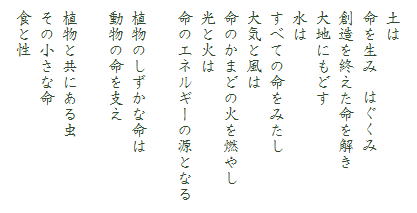 土は
命を生み　はぐくみ
創造を終えた命を解き
大地にもどす
水は
すべての命をみたし
大気と風は
命のかまどの火を燃やし
光と火は
命のエネルギーの源となる
植物のしずかな命は
動物の命を支え
植物と共にある虫
その小さな命
食と性